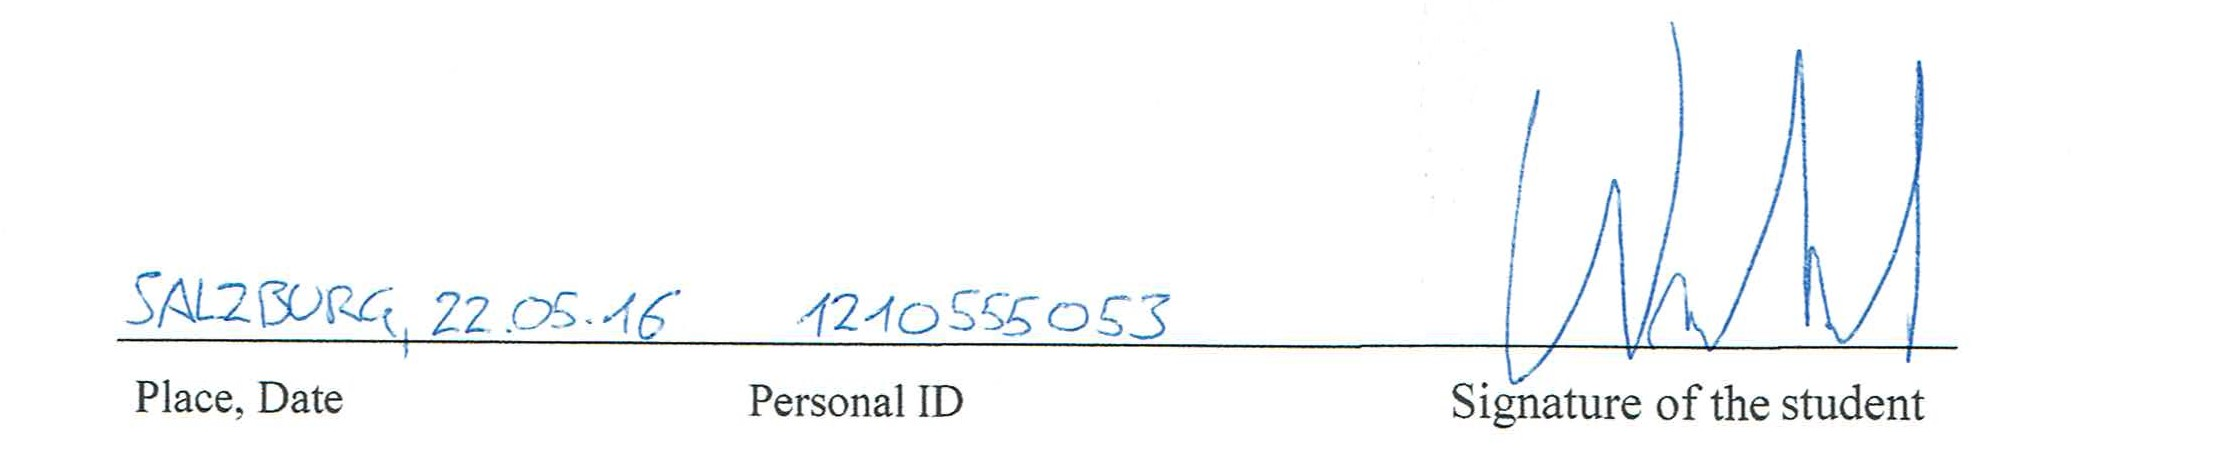 SALZBURG, 22.05.16 1210555053
Place, Date Personal ID Signature of the student